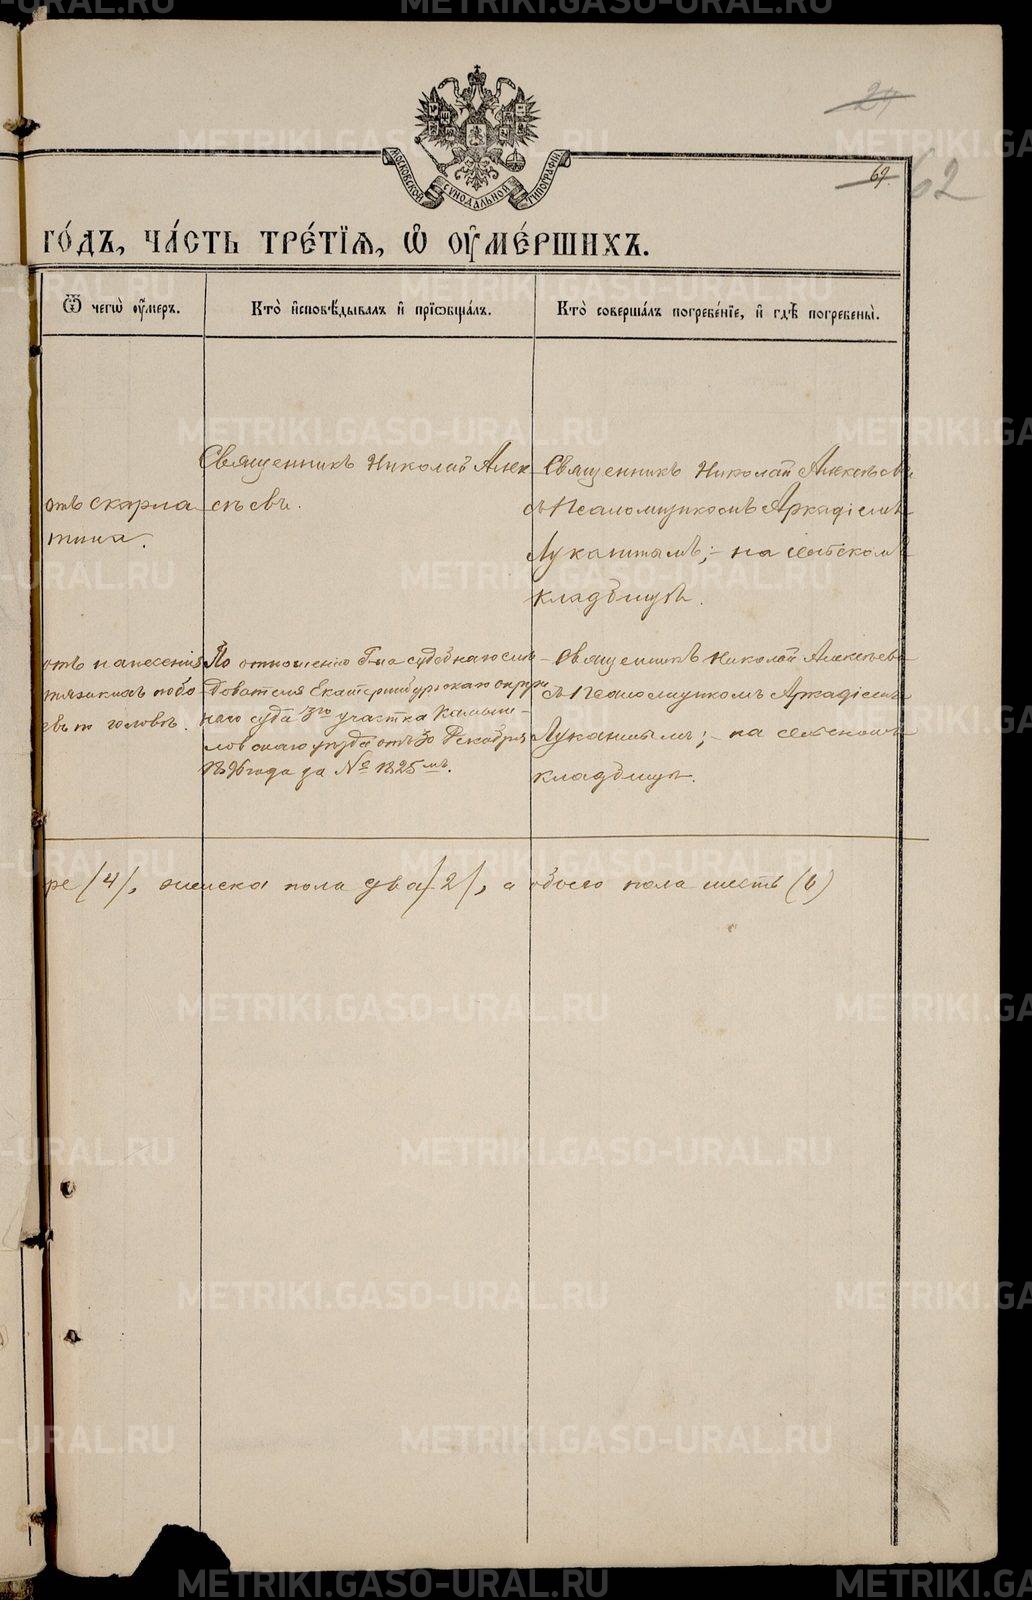 24
69.
62
МОСКОВСКОЙ СѴНОДАЛЬНОЙ ТИПОГРАФІИ
го́дъ, ча́сть тре́тїѧ, ѡ҆ ᲂу҆ме́ршихъ.
Ѿ чегѡ̀ ᲂу҆́меръ.
Кто̀ и҆сповѣ́дывалъ и҆ прїѡбща́лъ.
Кто̀ соверша́лъ погребе́нїе, и҆ гдѣ̀ погребены̀.
отъ скарла
тина.
Священникъ Николай Алек
сѣевъ.
Священникъ Николай Алексѣевъ
съ Псаломщикомъ Аркадіемъ
Луканинымъ; - на сельскомъ
кладбищѣ.
отъ нанесенія
тяжкихъ побо
евъ по головѣ.
По отношенію Г-на судебнаго слѣ
дователя Екатеринбургскаго окруж
наго суда 3го участка Камыш-
ловскаго уѣзда отъ 30 Декабря
1896 года за № 1825мъ.
Священникъ Николай Алексѣевъ
съ Псаломщикомъ Аркадіемъ
Луканинымъ; - на сельскомъ
кладбищѣ.
ре /4/, женска пола два /2/, а обоего пола шесть (6)
METRIKI.GASO-URAL.RU